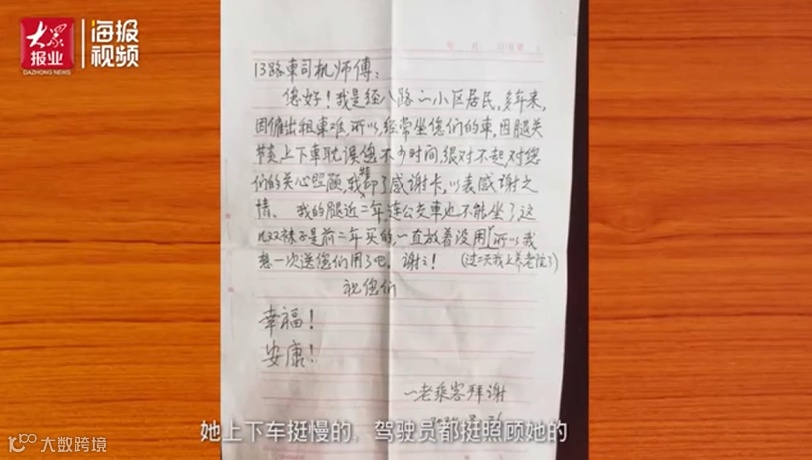 大众报业
DAZHONG NEWS
海报视频
13路車司机师傅：
您好！我是经八路一小区居民，多年来，
因僱出租車难，所以，经常坐您们的車，因腿关
节炎上下車耽误您不少时间，很对不起，对您
们的关心照顾，我特印了感谢卡，以表感谢之
情、我的腿近二年连公交車也不能坐了，这
几双袜子是前二年买的，一直放着没用，所以我
想一次送您们用了吧，谢谢！（过二天我上养老院了）
祝您们
幸福！
安康！
一老乘客拜谢
她上下车挺慢的，驾驶员都挺照顾她的
大数跨境